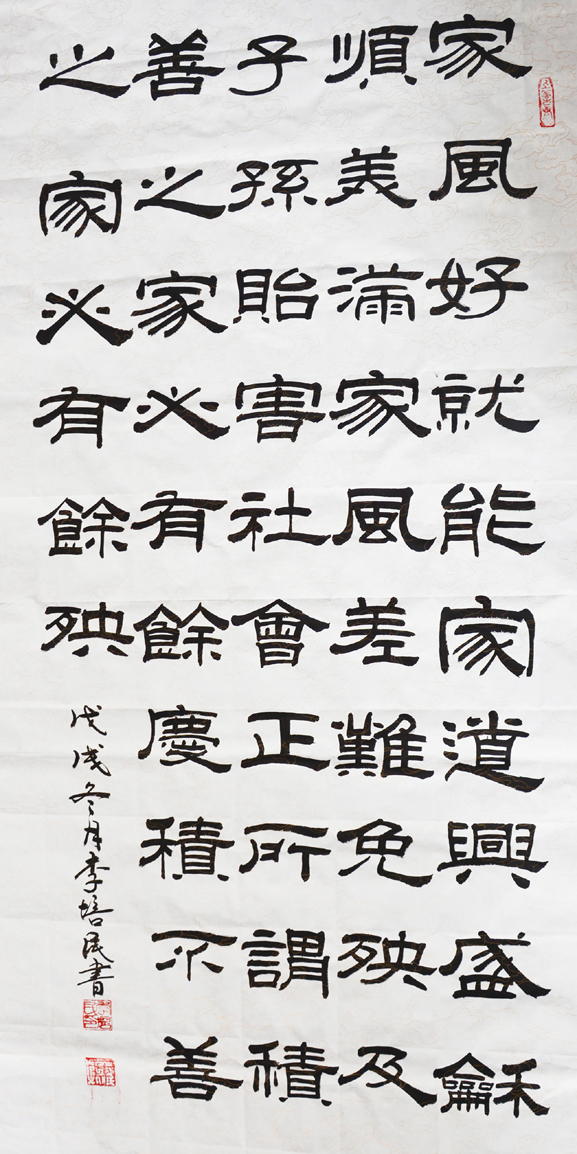 家風好就能家道興盛龢
順美滿家風差難免殃及
子孫貽害社會正所謂積
善之家必有餘慶積不善
之家必有餘殃
戊戌冬月李培民書